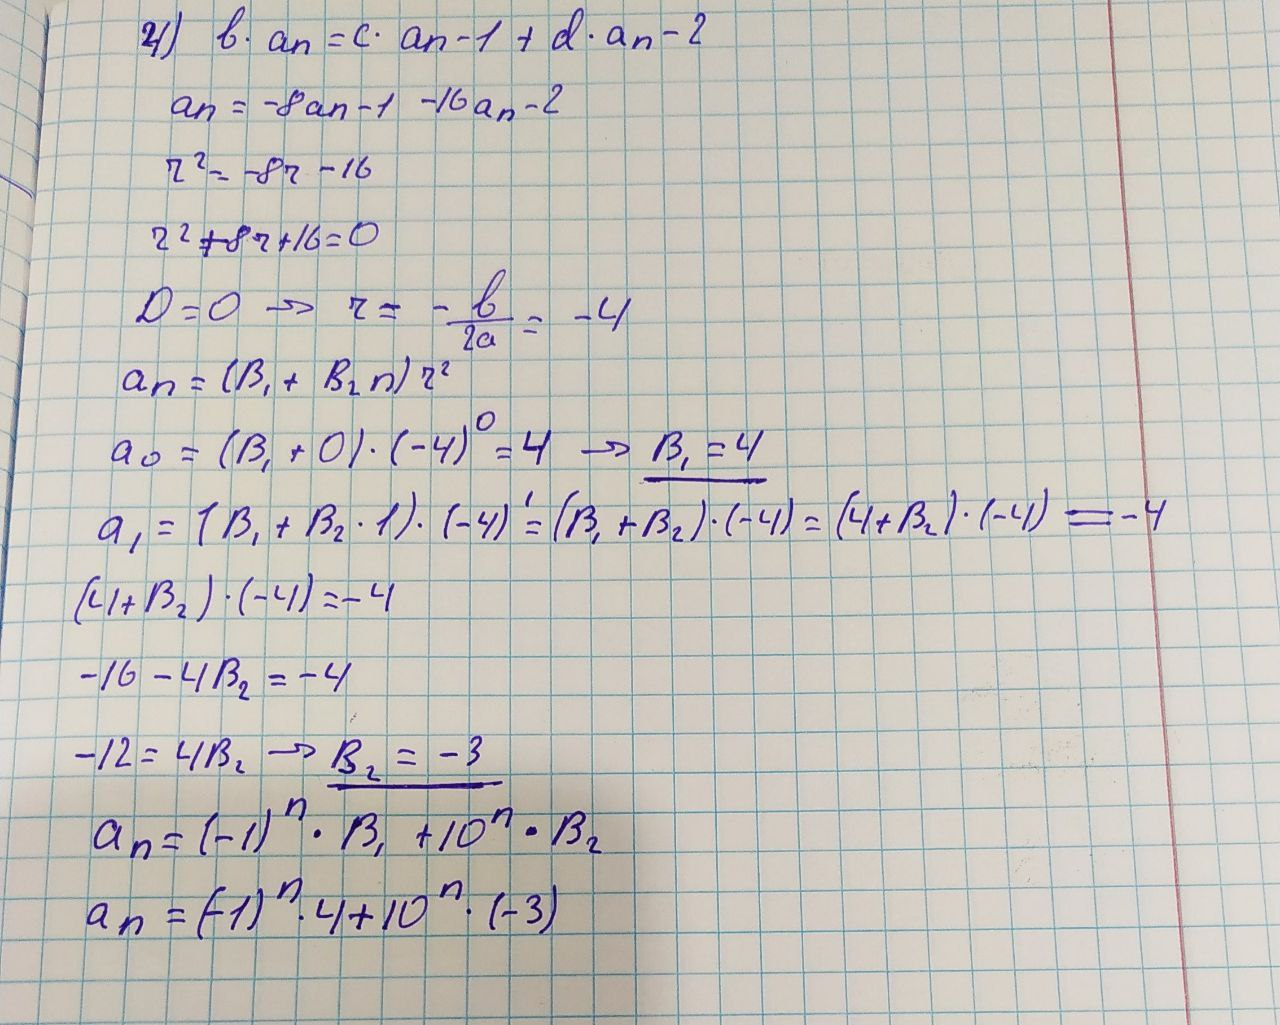 4) b · an = c · an-1 + d · an-2
an = -8an-1 -16an-2
r² = -8r -16
r² + 8r + 16 = 0
D = 0 → r = - b/2a = -4
an = (B₁ + B₂n) r²
a₀ = (B₁ + 0) · (-4)⁰ = 4 → B₁ = 4
a₁ = (B₁ + B₂ · 1) · (-4)¹ = (B₁ + B₂) · (-4) = (4 + B₂) · (-4) = -4
(4 + B₂) · (-4) = -4
-16 - 4B₂ = -4
-12 = 4B₂ → B₂ = -3
an = (-1)ⁿ · B₁ + 10ⁿ · B₂
an = (-1)ⁿ · 4 + 10ⁿ · (-3)